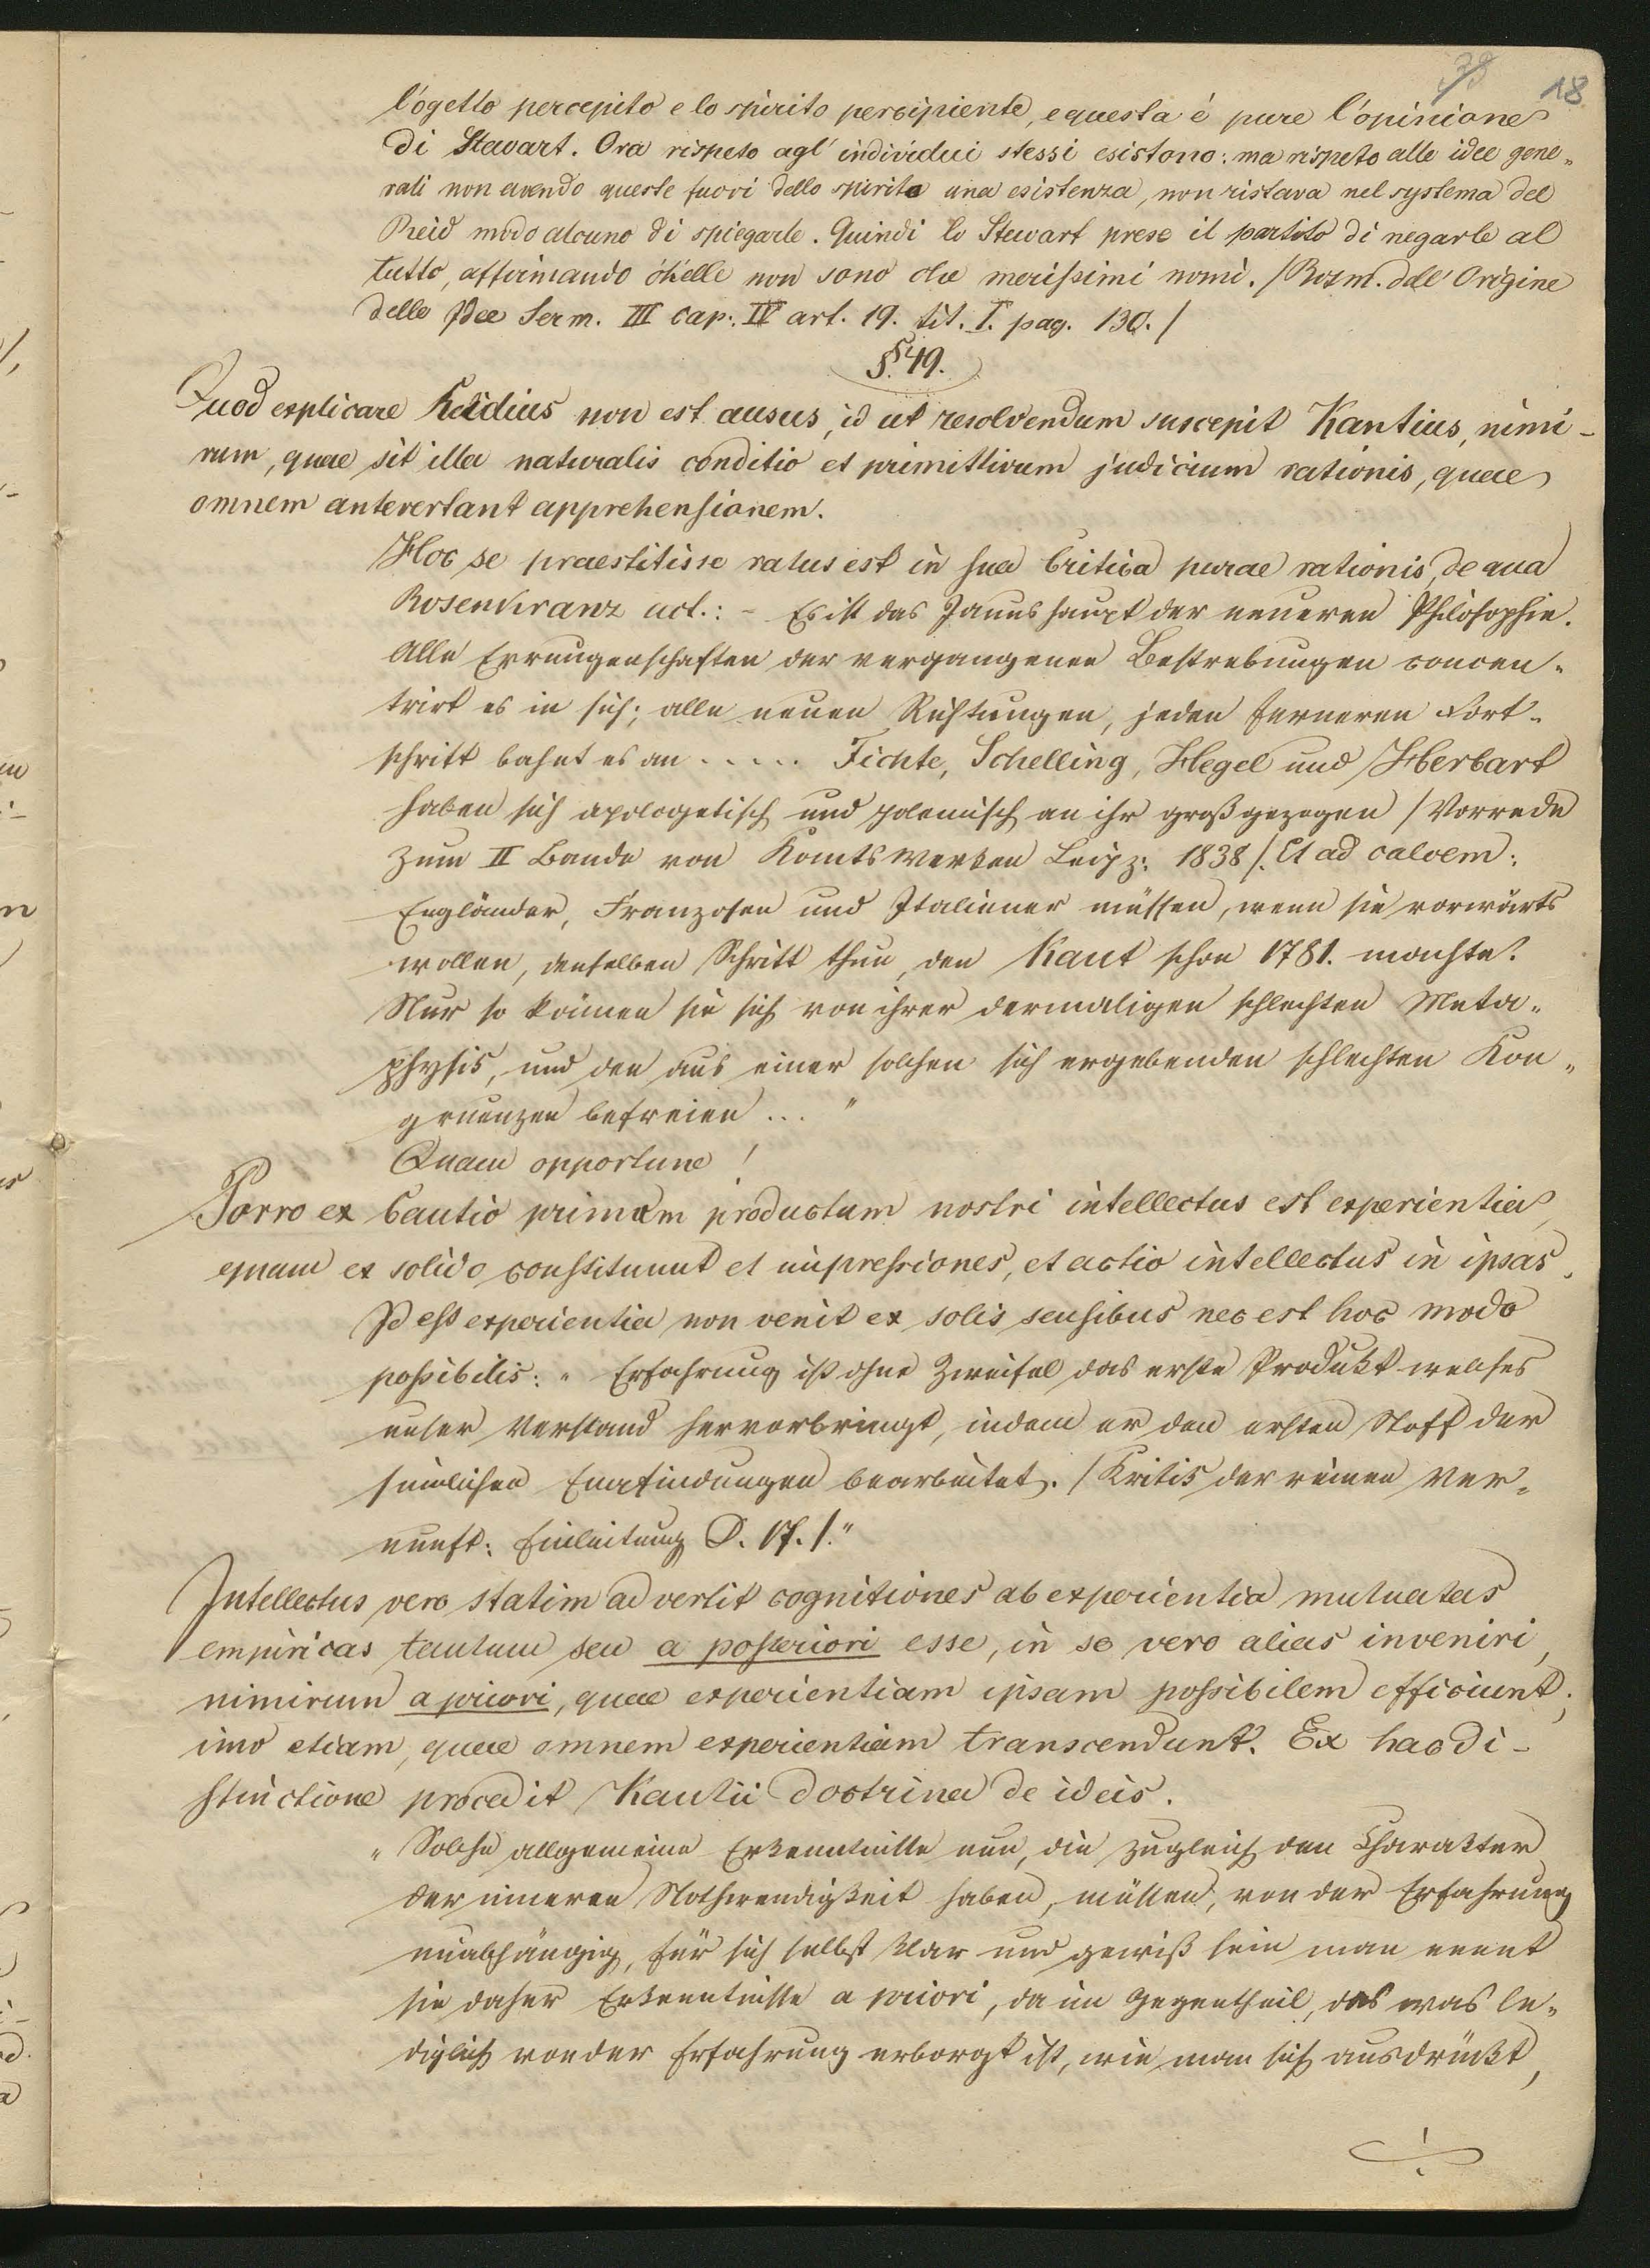 18
l'ogetto percepito e lo spirito percipiente, e questa é pure l'opinione
di Stavart. Ora rispeto agl' individui stessi esistono: ma rispeto alle idee gene-
rali non avendo queste fuori dello spirito una esistenza, non ristava nel systema del
Reid modo alcuno di spiegarle. Quindi lo Stewart prese il partito di negarle al
tutto, affirmando ch'elle non sono che merissimi nomi. /Rosm. dell' Origine
delle Idee Serm. III cap. IV art. 19. tit. I. pag. 130./
§. 49.
Quod explicare Reidius non est ausus, id ut resolvendum suscepit Kantius, nimi-
rum, quae sit illa naturalis conditio et primittivum judicium rationis, quae
omnem antevertant apprehensionem.
Hoc se praestitisse ratus est in sua Critica purae rationis, de qua
Rosenkranz act.: - Es ist das Janushaupt der neueren Philosophie.
Alle Errungenschaften der vergangenen Bestrebungen concen-
trirt es in sich; alle neuen Richtungen, jeden ferneren Fort-
schritt bahnt es an ..... Fichte, Schelling, Hegel und Herbart
haben sich apologetisch und polemisch an ihr großgezogen /Vorrede
zum II Bande von Kants Werken Leipz: 1838/. Et ad calcem:
Engländer, Franzosen und Italiener müssen, wenn sie vorwärts
wollen, denselben Schritt thun, den Kant schon 1781. machte.
Nur so können sie sich von ihrer dermaligen schlechten Meta-
physik, und den aus einer solchen sich ergebenden schlechten Kon-
gruenzen befreien ... "
Quam opportune!
Porro ex Cantio primum productum nostri intellectus est experientia,
quam ex solido constituunt et impressiones, et actio intellectus in ipsas.
Id est experientia non venit ex solis sensibus nec est hoc modo
possibilis: " Erfahrung ist ohne Zweifel das erste Produkt welches
unser Verstand hervorbringt, indem er den ersten Stoff der
sinnlichen Empfindungen bearbeitet. /Kritik der reinen Ver-
nunft: Einleitung S. 17./."
Intellectus vero statim advertit cognitiones ab experientia mutuatas
empiricas tantum seu a posteriori esse, in se vero alias inveniri,
nimirum a priori, quae experientiam ipsam possibilem efficiunt;
imo etiam, quae omnem experientiam transcendunt. Ex hac di-
stinctione procedit Kantii doctrina de ideis.
" Solche allgemeine Erkenntnisse nun, die zugleich den Charakter
der inneren Nothwendigkeit haben, müssen, von der Erfahrung
unabhängig, für sich selbst klar und gewiß sein man nennt
sie daher Erkenntnisse a priori, da im Gegentheil, das was le-
diglich von der Erfahrung erborgt ist, wie man sich ausdrückt,